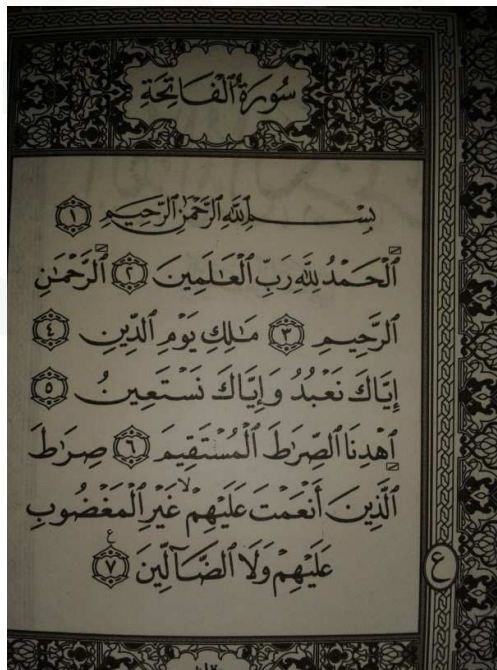 سُورَةُ ٱلْفَاتِحَةِ
بِسْمِ ٱللَّهِ ٱلرَّحْمَٰنِ ٱلرَّحِيمِ ١
ٱلْحَمْدُ لِلَّهِ رَبِّ ٱلْعَٰلَمِينَ ٢ ٱلرَّحْمَٰنِ
ٱلرَّحِيمِ ٣ مَٰلِكِ يَوْمِ ٱلدِّينِ ٤
إِيَّاكَ نَعْبُدُ وَإِيَّاكَ نَسْتَعِينُ ٥
ٱهْدِنَا ٱلصِّرَٰطَ ٱلْمُسْتَقِيمَ ٦ صِرَٰطَ
ٱلَّذِينَ أَنْعَمْتَ عَلَيْهِمْ ۙ غَيْرِ ٱلْمَغْضُوبِ
عَلَيْهِمْ وَلَا ٱلضَّآلِّينَ ٧ ع
ع